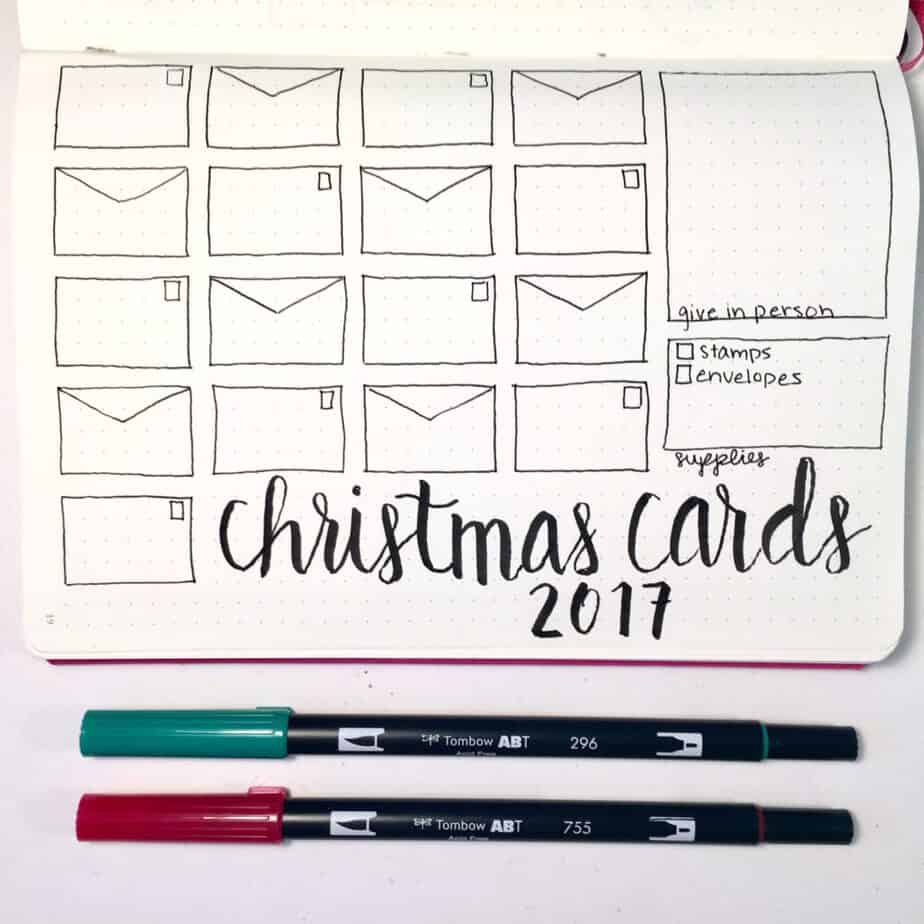 give in person
stamps
envelopes
supplies
christmas cards
2017
19
Tombow ABT 296
Acid Free
Tombow ABT 755
Acid Free